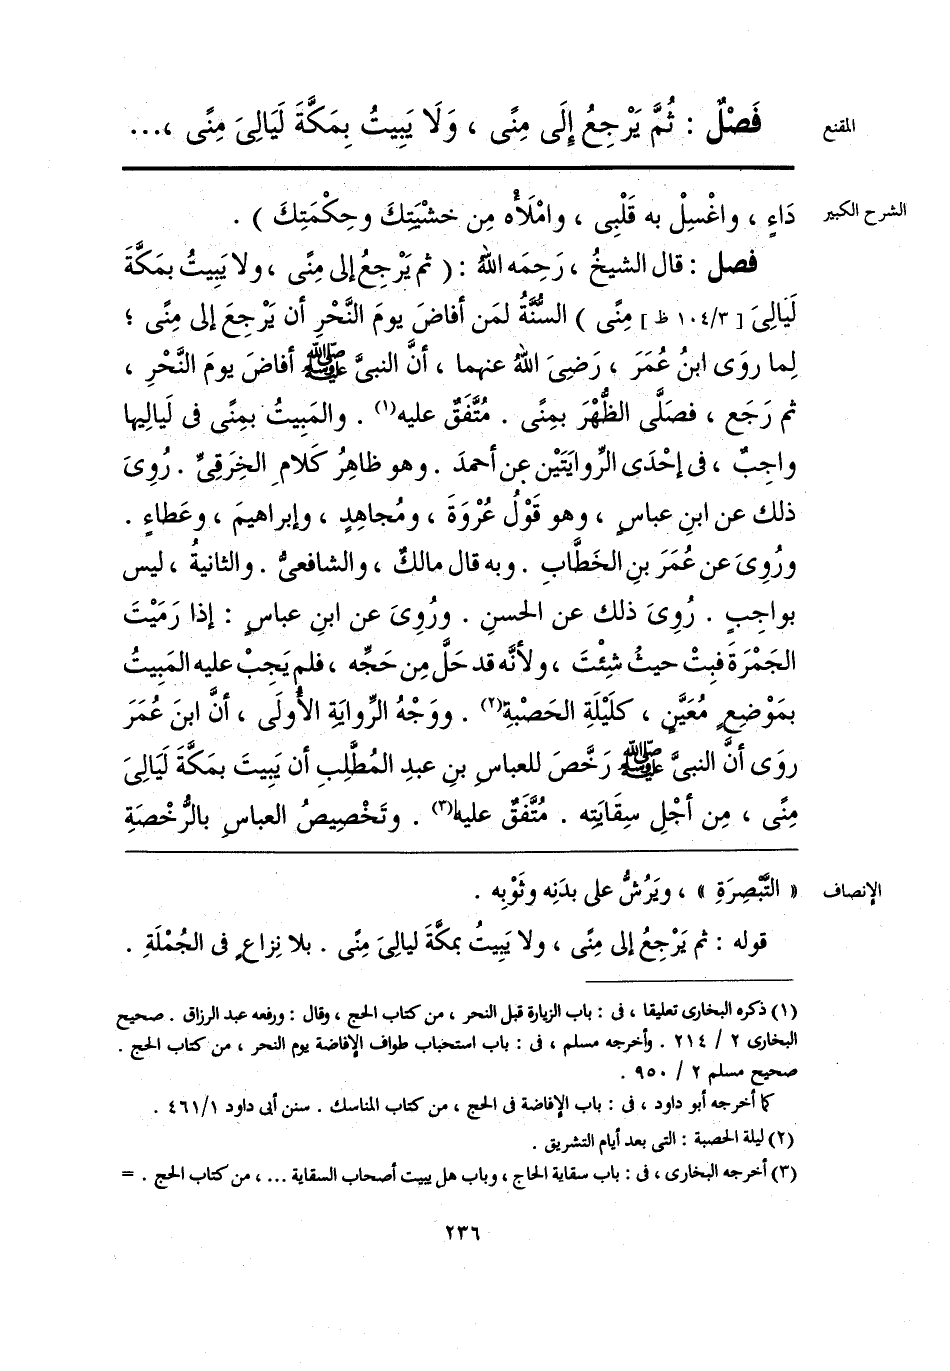 المقنع
فَصْلٌ : ثُمَّ يَرْجِعُ إِلَى مِنًى ، وَلَا يَبِيتُ بِمَكَّةَ لَيَالِىَ مِنًى ،...
الشرح الكبير
دَاءٍ ، واغْسِلْ به قَلْبِى ، وامْلَأْه مِن خَشْيَتِكَ وحِكْمَتِكَ ) .
فصل : قال الشيخُ ، رَحِمَه اللهُ : ( ثم يَرْجِعُ إلى مِنًى ، ولا يَبِيتُ بمَكَّةَ
لَيَالِىَ [ ١٠٤/٣ ظ ] مِنًى ) السُّنَّةُ لمَن أفاضَ يومَ النَّحْرِ أن يَرْجِعَ إلى مِنًى ؛
لِما روَى ابنُ عُمَرَ ، رَضِىَ اللهُ عنهما ، أنَّ النبىَّ ﷺ أفاضَ يومَ النَّحْرِ ،
ثم رَجَع ، فصَلَّى الظُّهْرَ بمِنًى . مُتَّفَقٌ عليه(١) . والمَبِيتُ بمِنًى فى لَيالِيها
واجِبٌ ، فى إحْدَى الرِّوايَتَيْن عن أحمدَ . وهو ظاهِرُ كَلامِ الخِرَقِىِّ . رُوِىَ
ذلك عن ابنِ عباسٍ ، وهو قَوْلُ عُرْوَةَ ، ومُجاهِدٍ ، وإبراهيمَ ، وعَطاءٍ .
ورُوِىَ عن عُمَرَ بنِ الخَطَّابِ . وبه قال مالكٌ ، والشافعىُّ . والثانيةُ ، ليس
بواجِبٍ . رُوِىَ ذلك عن الحسنِ . ورُوِىَ عن ابنِ عباسٍ : إذا رَمَيْتَ
الجَمْرَةَ فبِتْ حيثُ شِئْتَ ، ولأنَّه قد حَلَّ مِن حَجِّه ، فلم يَجِبْ عليه المَبِيتُ
بمَوْضِعٍ مُعَيَّنٍ ، كلَيْلَةِ الحَصْبةِ(٢) . ووَجْهُ الرِّوايَةِ الأُولَى ، أنَّ ابنَ عُمَرَ
روَى أنَّ النبىَّ ﷺ رَخَّصَ للعباسِ بنِ عبدِ المُطَّلِبِ أن يَبِيتَ بمَكَّةَ لَيَالِىَ
مِنًى ، مِن أجْلِ سِقَايَتِه . مُتَّفَقٌ عليه(٣) . وتَخْصِيصُ العباسِ بالرُّخْصَةِ
الإنصاف
« التَّبْصِرَةِ » ، ويَرُشُّ على بدَنِه وثَوْبِه .
قوله : ثم يَرْجِعُ إلى مِنًى ، ولا يَبِيتُ بمكَّةَ ليالِىَ مِنًى . بلا نِزاعٍ فى الجُمْلَةِ .
(١) ذكره البخارى تعليقا ، فى : باب الزيارة قبل النحر ، من كتاب الحج ، وقال : ورفعه عبد الرزاق . صحيح
البخارى ٢ / ٢١٤ . وأخرجه مسلم ، فى : باب استحباب طواف الإفاضة يوم النحر ، من كتاب الحج .
صحيح مسلم ٢ / ٩٥٠ .
كما أخرجه أبو داود ، فى : باب الإفاضة فى الحج ، من كتاب المناسك . سنن أبى داود ٤٦١/١ .
(٢) ليلة الحصبة : التى بعد أيام التشريق .
(٣) أخرجه البخارى ، فى : باب سقاية الحاج ، وباب هل يبيت أصحاب السقاية ... ، من كتاب الحج . =
٢٣٦